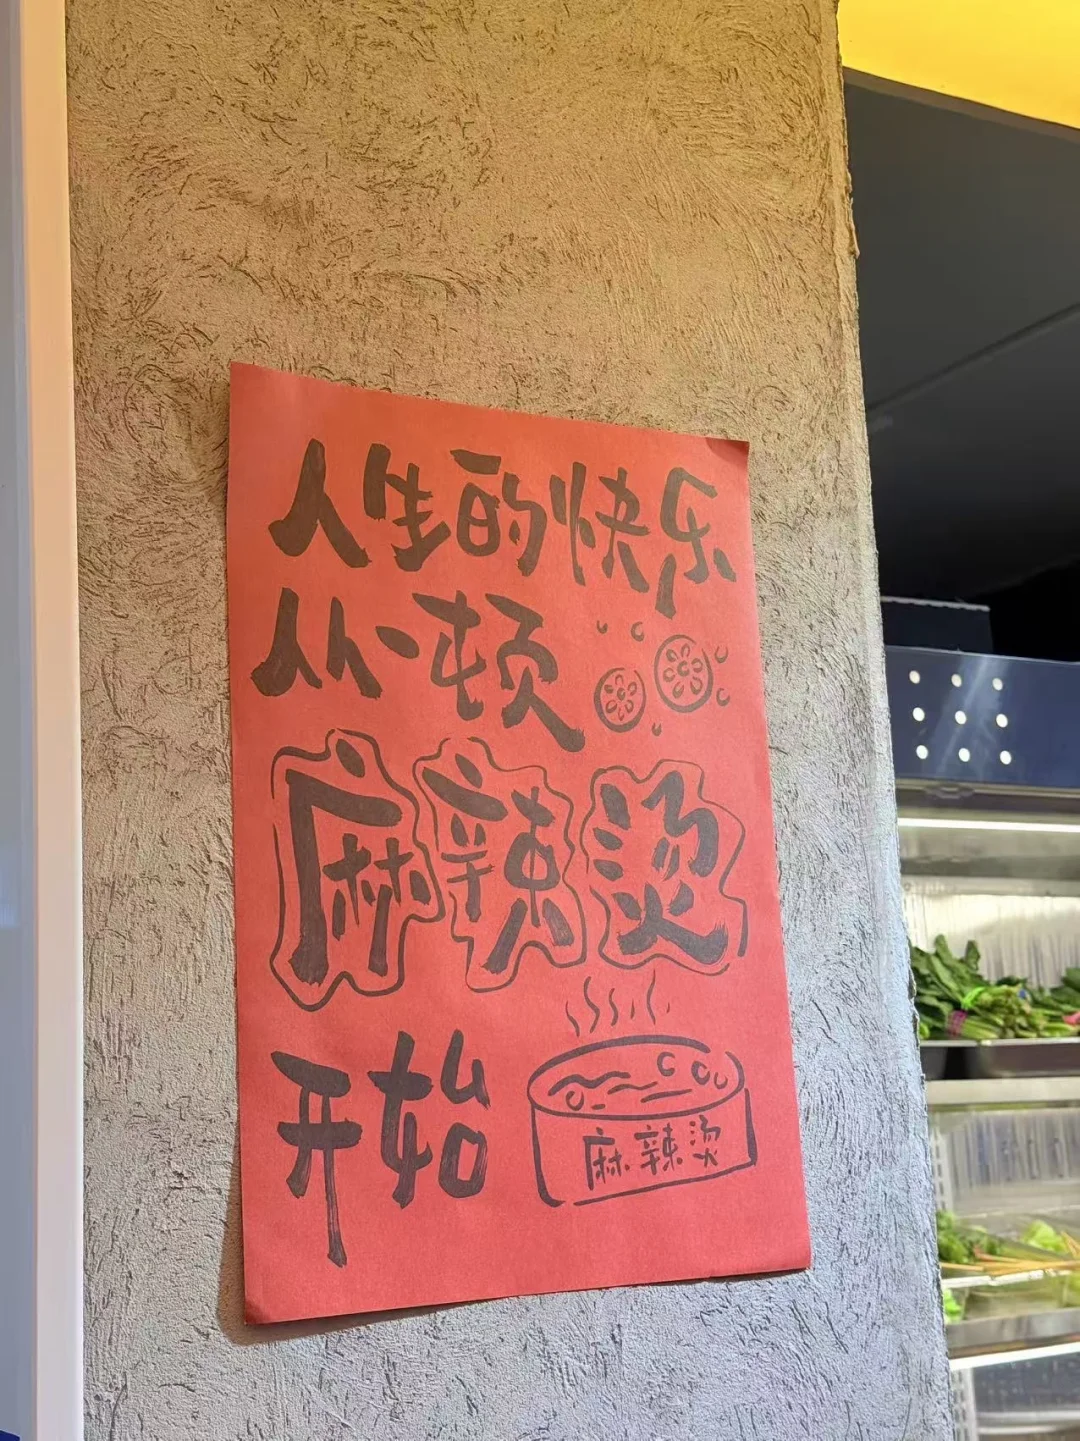 人生的快乐
从一顿
麻辣烫
开始
麻辣烫